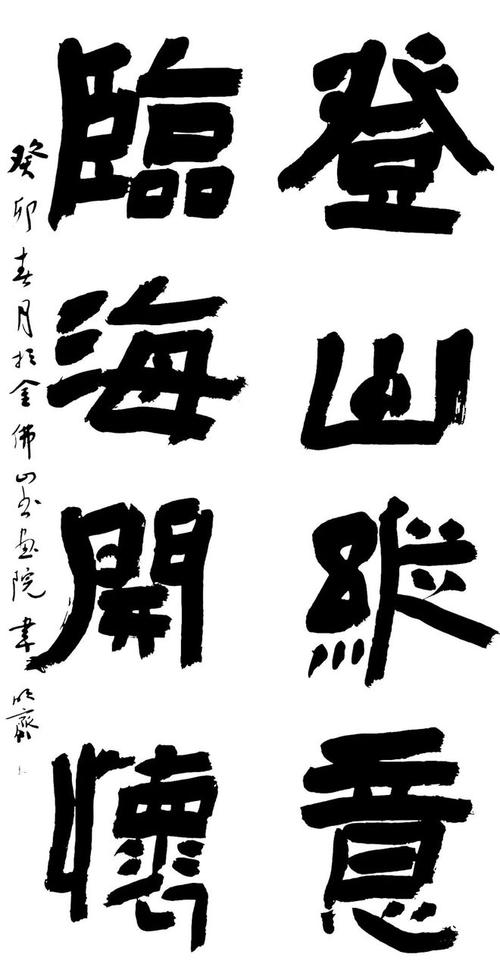 登山縱意
臨海開懷
癸卯春月於金佛山書画院韋明齋